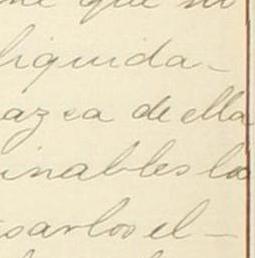 que su
liquida-
azca de ella
inables la
sarlos el-